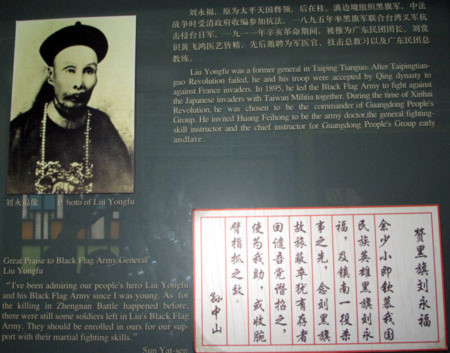 刘永福，原为太平天国将领。后在桂、滇边境组织黑旗军，中法
战争时受清政府收编参加抗法。一八九五年率黑旗军联合台湾义军抗
击侵台日军。一九一一年辛亥革命期间，被推为广东民团团长。刘赏
识黄飞鸿医艺皆精，先后邀聘为军医官、技击总教习以及广东民团总
教练。
Liu Yongfu was a former general in Taiping Tianguo. After Taipingtian-
guao Revolution failed, he and his troop were accepted by Qing dynasty to
against France invaders. In 1895, he led the Black Flag Army to fight against
the Japanese invaders with Taiwan Militia together. During the time of Xinhai
Revolution, he was chosen to be the commander of Guangdong People's
Group. He invited Huang Feihong to be the army doctor,the general fighting-
skill instructor and the chief instructor for Guangdong People's Group early
andlate.
刘永福像 Photo of Liu Yongfu
Great Praise to Black Flag Army General
Liu Yongfu
"I've been admiring our people's hero Liu Yongfu
and his Black Flag Army since I was young. As for
the killing in Zhengnan Battle happened before,
there were still some soldiers left in Liu's Black Flag
Army. They should be enrolled in ours for our sup-
port with their martial fighting skills."
Sun Yat-sen
赞黑旗刘永福
余少小即钦慕我国
民族英雄黑旗刘永
福，及镇南一役杀
事之先，念刘黑旗
故旅最卒犹有存者
回谴吾党谐招之，
使为我助，或收腕
臂指孤之效。
孙中山